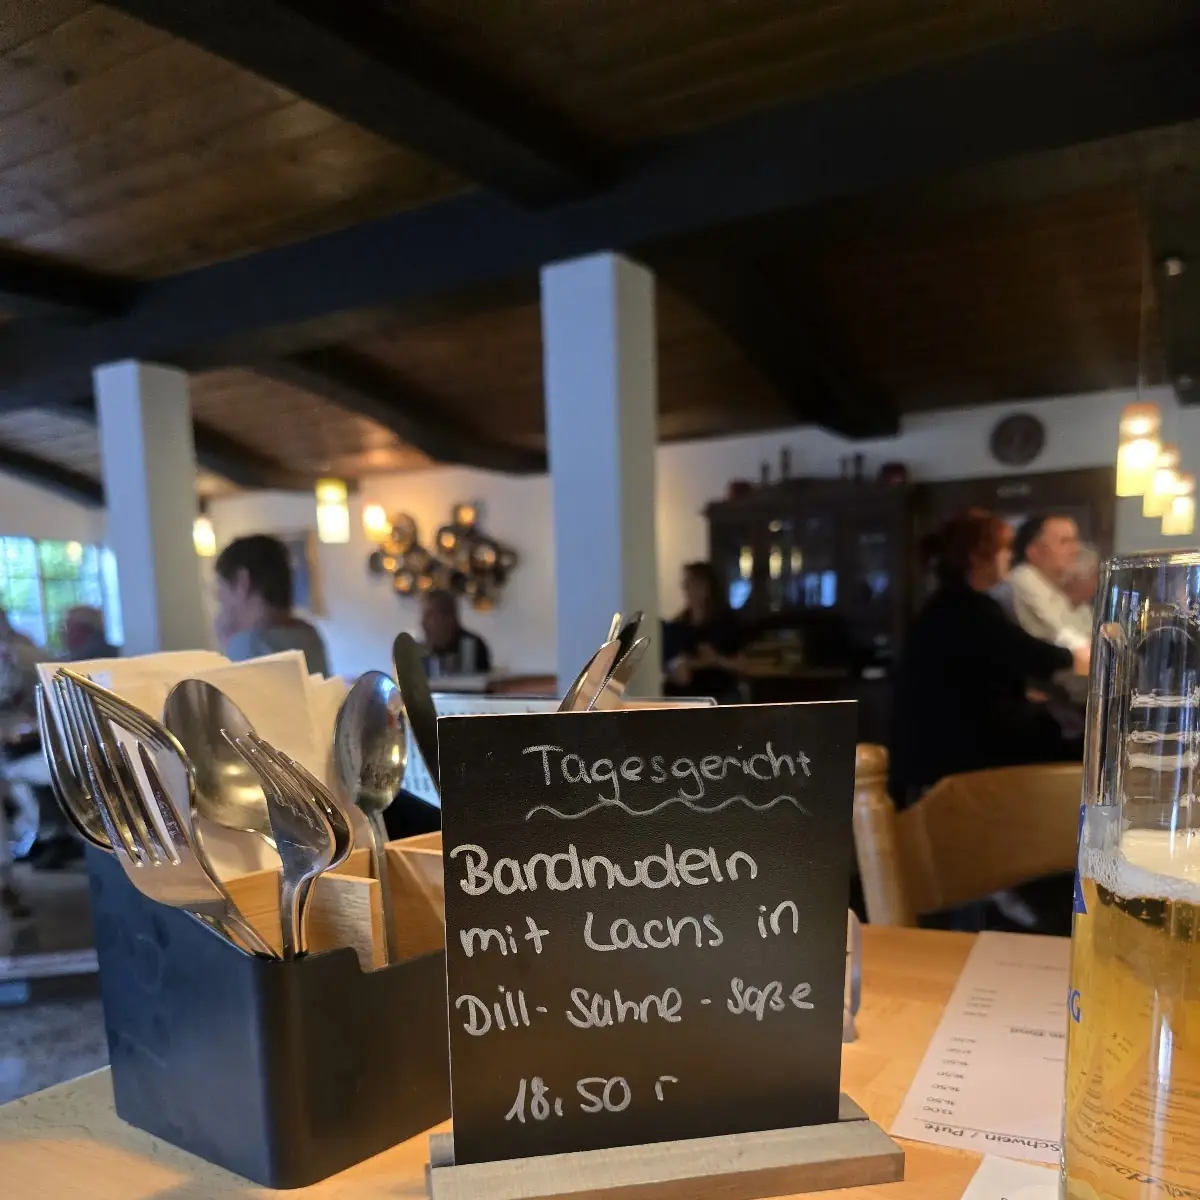 Tagesgericht
Bandnudeln
mit Lachs in
Dill-Sahne-Soße
18,50 r
schwein / Pute